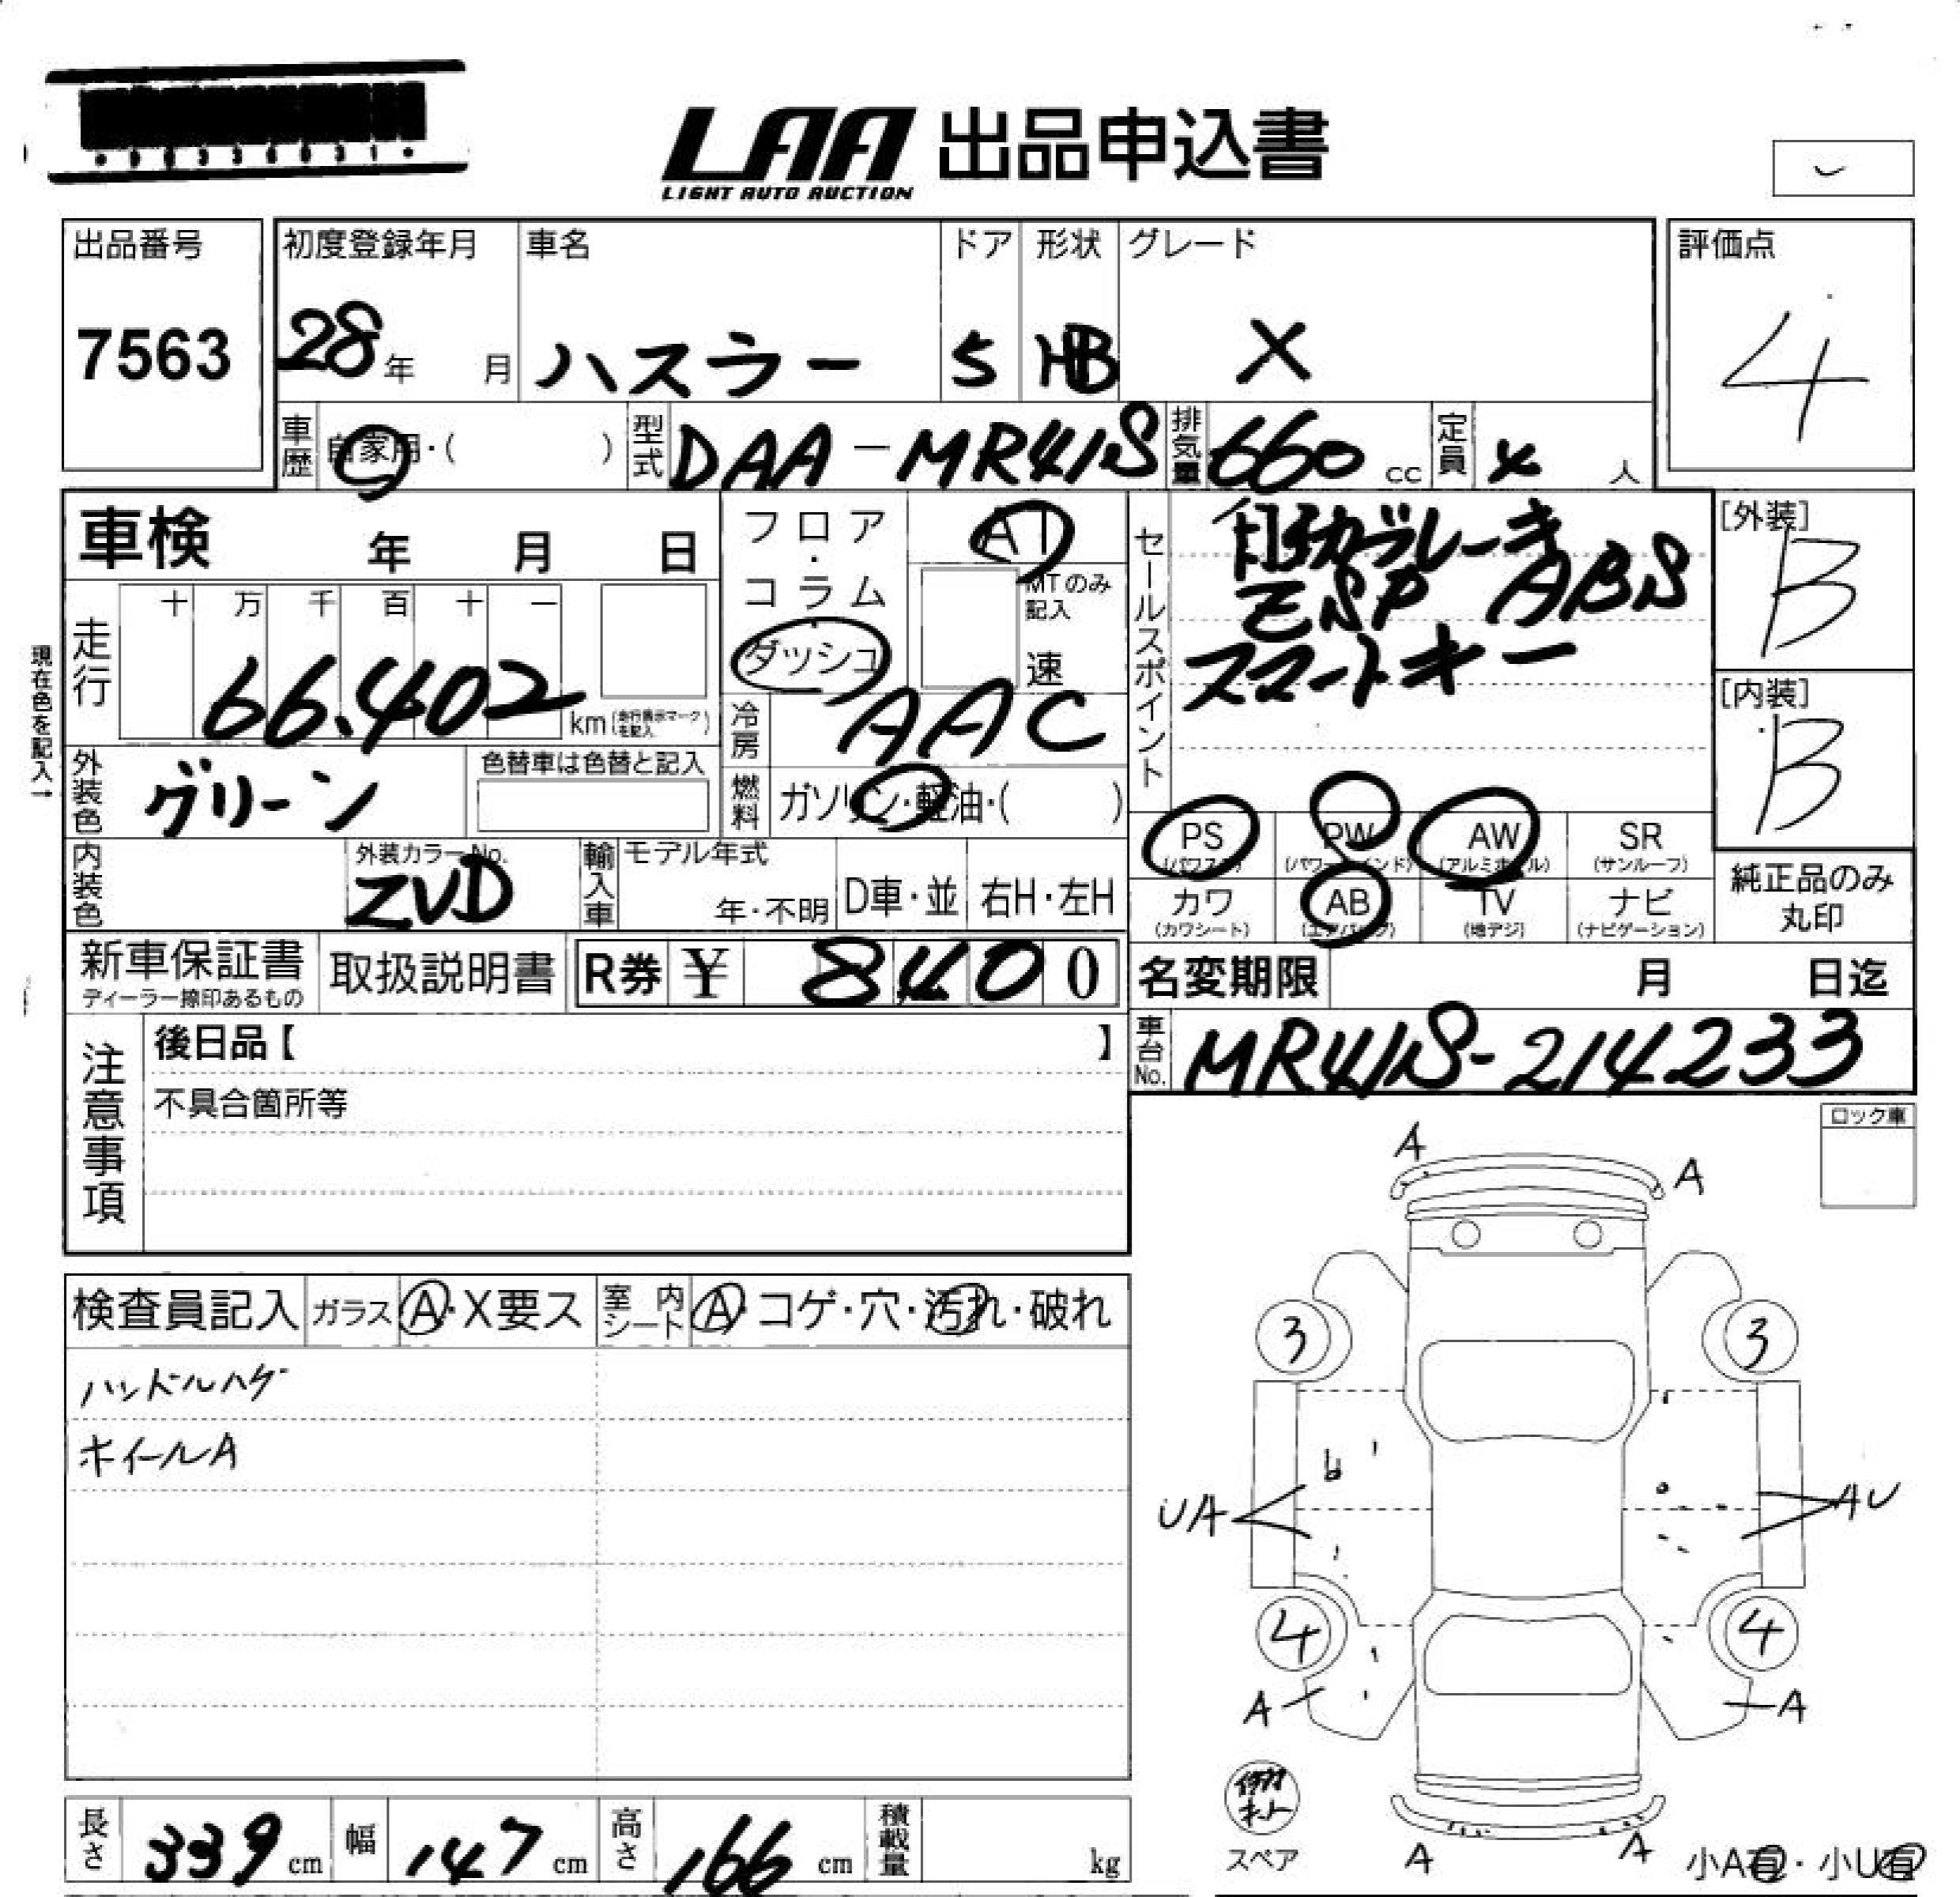 LAA 出品申込書
LIGHT AUTO AUCTION
出品番号
7563
初度登録年月
28年 月
車名
ハスラー
ドア
5
形状
HB
グレード
X
評価点
4
車歴 自家用・( )
型式 DAA-MR41S
排気量 660 cc
定員 4 人
車検 年 月 日
フロア・コラム
ダッシュ
AT
MTのみ記入
速
セールスポイント
自動ブレーキ
ESP ABS
スマートキー
[外装]
B
[内装]
B
現在色を記入→
走行 十 万 千 百 十 一
66,402 km (走行表示マークを記入)
冷房 AAC
外装色 グリーン
色替車は色替と記入
燃料 ガソリン・軽油・( )
内装色
外装カラーNo.
ZVD
輸入車 モデル年式
年・不明 D車・並 右H・左H
PS (パワステ)
PW (パワーウインド)
AW (アルミホイル)
SR (サンルーフ)
カワ (カワシート)
AB (エアバッグ)
TV (地デジ)
ナビ (ナビゲーション)
純正品のみ
丸印
新車保証書
ディーラー捺印あるもの
取扱説明書
R券 ¥ 8400
名変期限 月 日迄
車台No. MR41S-214233
注意事項
後日品【 】
不具合箇所等
ロック車
検査員記入 ガラス A・X要ス 室内シート A・コゲ・穴・汚れ・破れ
ハンドルハゲ
ホイールA
A
A
3
3
UA
AU
4
4
A
A
スペア
A
A
小A有・小U有
長さ 339 cm
幅 147 cm
高さ 166 cm
積載量 kg